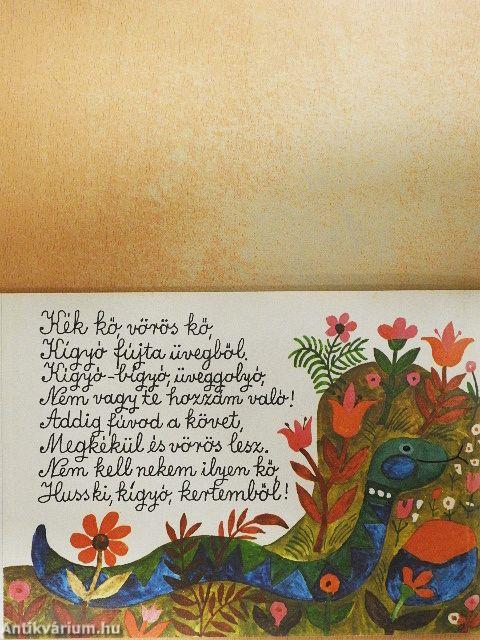 Kék kő, vörös kő,
Kígyó fújta üvegből.
Kígyó-bígyó, üveggolyó,
Nem vagy te hozzám való!
Addig fúvod a követ,
Megkékül és vörös lesz.
Nem kell nekem ilyen kő,
Husski, kígyó, kertemből!
Antikvárium.hu